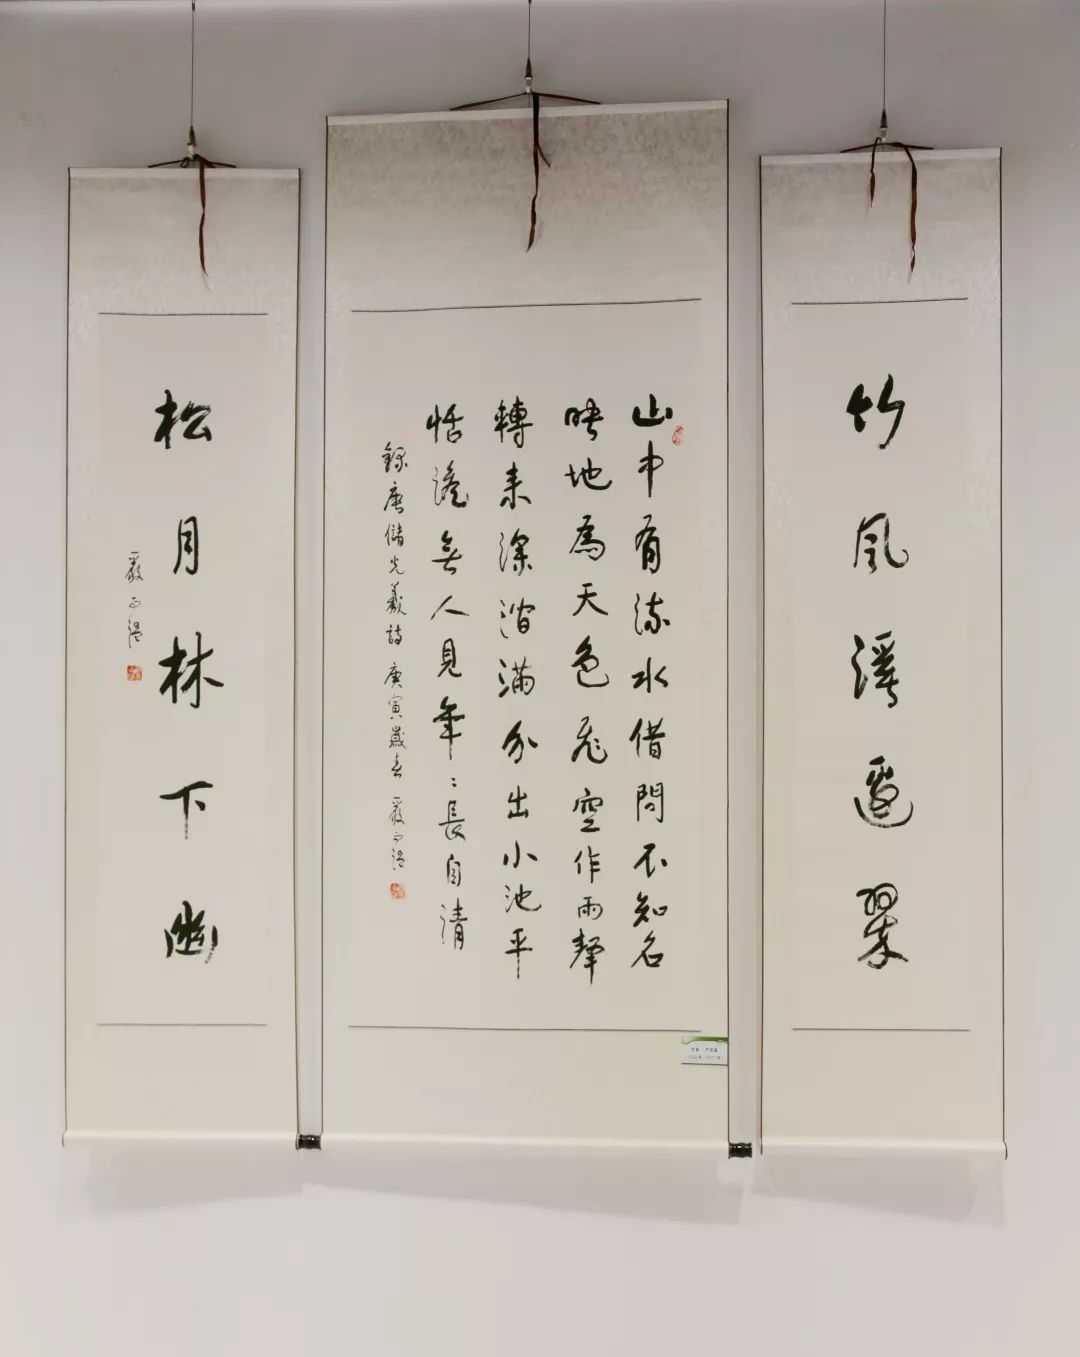 竹風溪邊翠
山中有流水借問不知名
映地為天色飛空作雨聲
轉来深澗滿分出小池平
恬澹無人見年〻長自清
錄唐儲光羲詩 庚寅歲春 嚴
松月林下幽
嚴